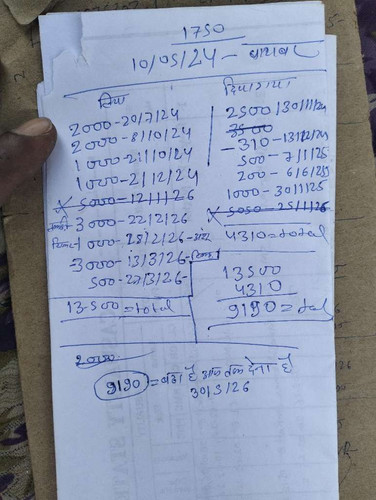 1750
10/05/24 -
लिया
2000-20/7/24
2000-8/10/24
1000-21/10/24
1000-2/12/24
5000-12/1/26
3000-22/2/26
1000-25/2/26-
3000-13/3/26-
500-27/3/26-
13500=total
दिया गया
2500/30/11/24
3500
-310-13/12/24
500-7/1/25
200-6/6/25
1000-30/1/25
5050-25/1/26
4310=total
13500
4310
9190=total
2000
9190=बचा है अब तक देना है
30/3/26